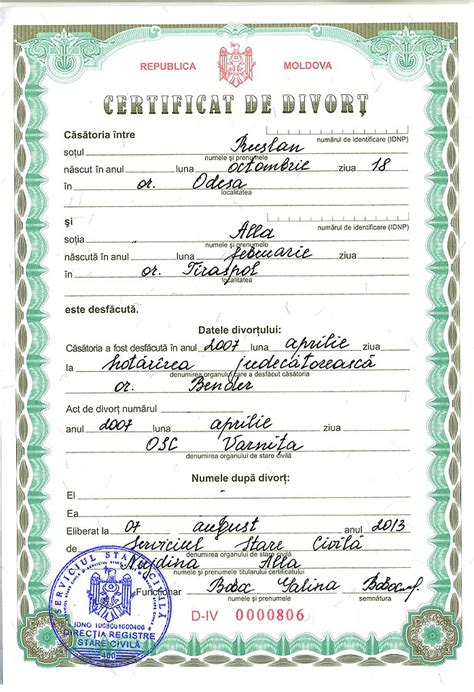 REPUBLICA MOLDOVA
CERTIFICAT DE DIVORŢ
Căsătoria între
numărul de identificare (IDNP)
soţul Ruslan
numele şi prenumele
născut în anul luna octombrie ziua 18
în or. Odesa
localitatea
şi
numărul de identificare (IDNP)
soţia Alla
numele şi prenumele
născută în anul luna februarie ziua
în or. Tiraspol
localitatea
este desfăcută.
Datele divorţului:
Căsătoria a fost desfăcută în anul 2007 luna aprilie ziua
la hotărîrea judecătorească
denumirea organului care a desfăcut căsătoria
or. Bender
Act de divorţ numărul
anul 2007 luna aprilie ziua
OSC Varniţa
denumirea organului de stare civilă
Numele după divorţ:
El
Ea
Eliberat la 07 august anul 2013
de Serviciul Stare Civilă
denumirea organului de stare civilă
Alla
numele şi prenumele titularului certificatului
Funcţionar Galina
numele şi prenumele semnătura
D-IV 0000806
SERVICIUL STARE CIVILĂ
DIRECŢIA REGISTRE
STARE CIVILĂ
400